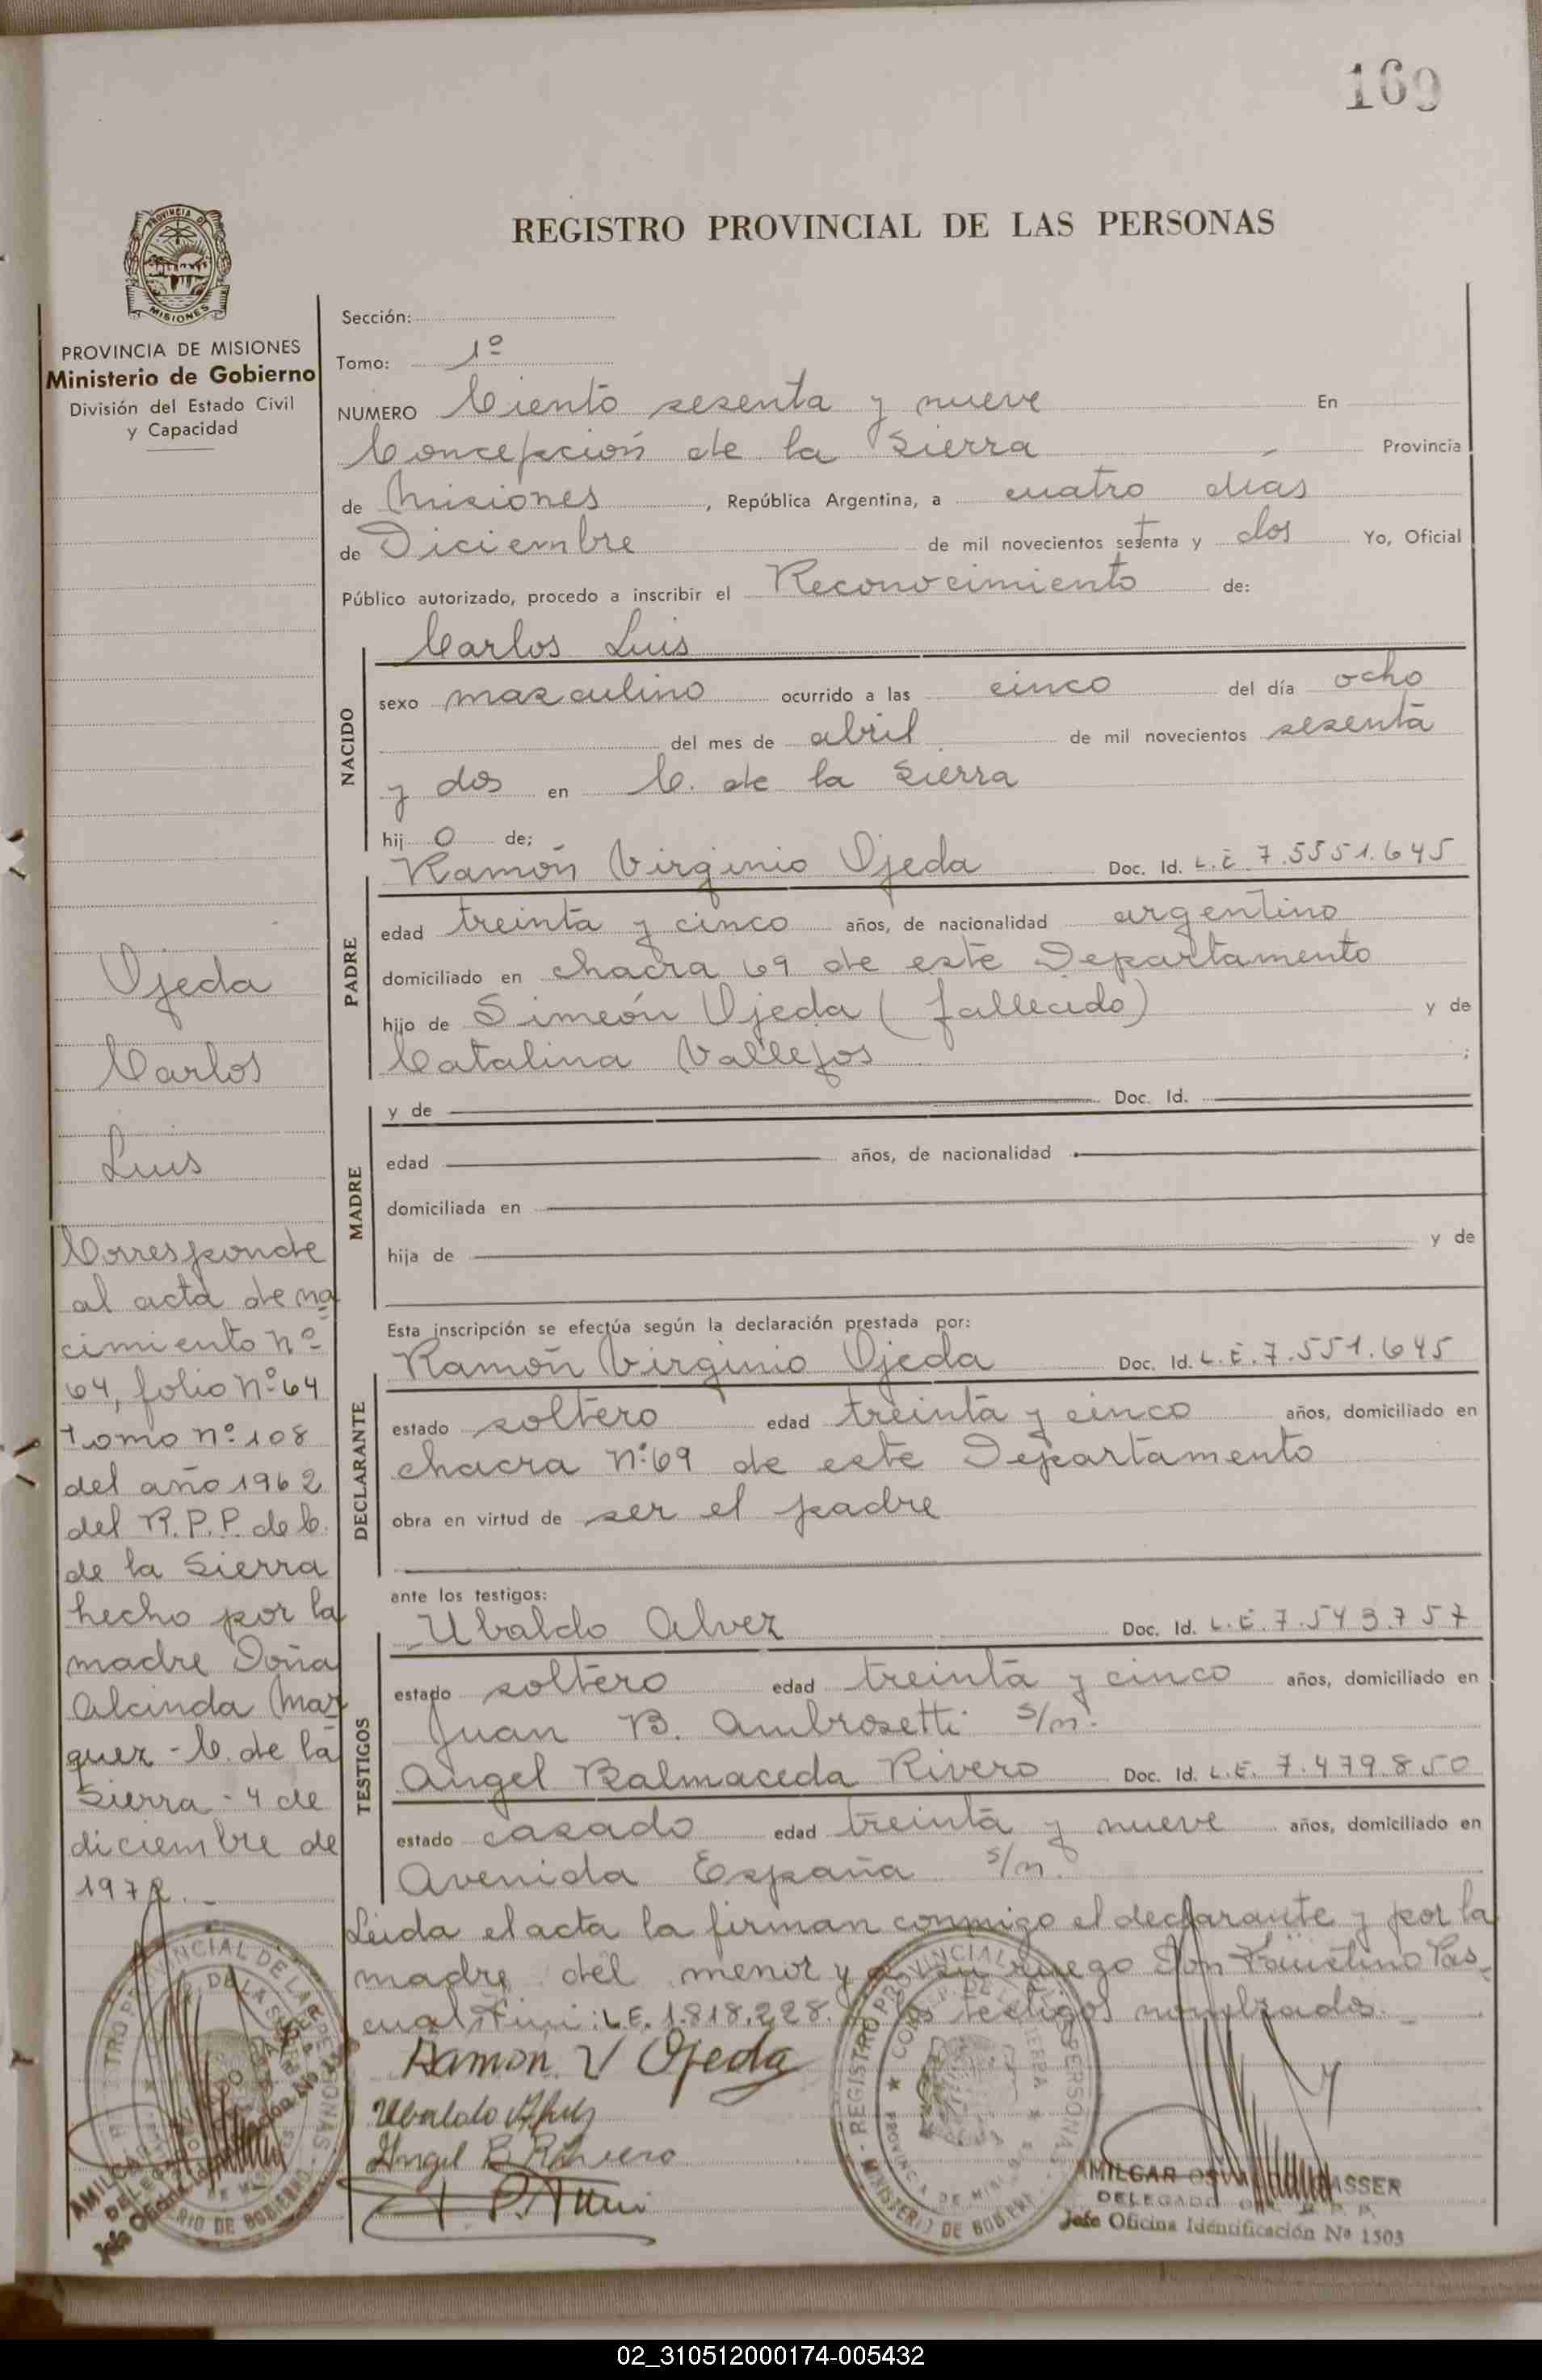 169
REGISTRO PROVINCIAL DE LAS PERSONAS
PROVINCIA DE MISIONES
Ministerio de Gobierno
División del Estado Civil
y Capacidad
Ojeda
Carlos
Luis
Corresponde
al acta de na
cimiento nº
64, folio nº 64
tomo nº 108
del año 1962
del R.P.P. de C.
de la Sierra
hecho por la
madre Doña
Alcinda Mar
quez - C. de la
Sierra - 4 de
diciembre de
1972.-
Sección:
Tomo: 1º
NUMERO Ciento sesenta y nueve En
Concepción de la Sierra Provincia
de Misiones, República Argentina, a cuatro días
de Diciembre de mil novecientos setenta y dos Yo, Oficial
Público autorizado, procedo a inscribir el Reconocimiento de:
NACIDO
Carlos Luis
sexo masculino ocurrido a las cinco del día ocho
del mes de abril de mil novecientos sesenta
y dos en C. de la Sierra
hijo de;
PADRE
Ramón Virginio Ojeda Doc. Id. L.E. 7.5551.645
edad treinta y cinco años, de nacionalidad argentino
domiciliado en chacra 69 de este Departamento
hijo de Simeón Ojeda (fallecido) y de
Catalina Vallejos ;
MADRE
y de Doc. Id.
edad años, de nacionalidad
domiciliada en
hija de y de
Esta inscripción se efectúa según la declaración prestada por:
DECLARANTE
Ramón Virginio Ojeda Doc. Id. L.E. 7.551.645
estado soltero edad treinta y cinco años, domiciliado en
chacra nº 69 de este Departamento
obra en virtud de ser el padre
ante los testigos:
TESTIGOS
Ubaldo Alvez Doc. Id. L.E. 7.543.757
estado soltero edad treinta y cinco años, domiciliado en
Juan B. Ambrosetti s/n.
Angel Balmaceda Rivero Doc. Id. L.E. 7.479.850
estado casado edad treinta y nueve años, domiciliado en
Avenida España s/n.
Leida el acta la firman conmigo el declarante y por la
madre del menor y a su ruego Don Faustino Pas-
cual L.E. 1.818.228. testigos nombrados.-
Ramon V Ojeda
Ubaldo
Angel B Rivero
DELEGADO
Jefe Oficina Identificación Nº 1503
02_310512000174-005432